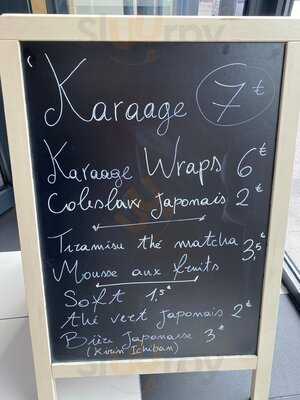 Karaage 7€
Karaage Wraps 6€
Coleslaw Japonais 2€
Tiramisu thé matcha 3,5€
Mousse aux fruits
Soft 1,5€
thé vert Japonais 2€
Bière Japonaise 3€
(Kirin Ichiban)